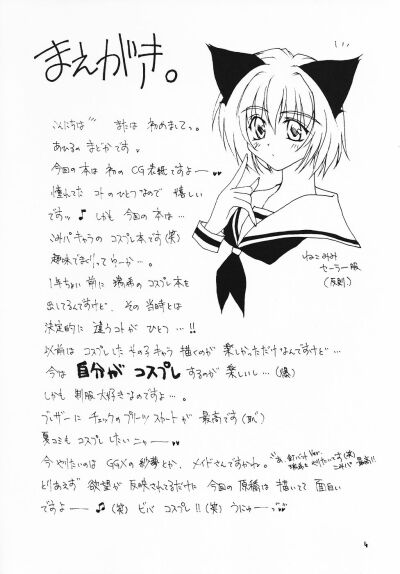 まえがき。
こんにちは または 初めまして。
あひるの まどかです。
今回の本は 初の CG表紙ですよー
憧れてた コトの ひとつなので 嬉しい
ですッ♪ しかも 今回の本は…
こみパキャラの コスプレ本です(笑)
趣味で まくりって らーか…。
1年ちょい 前に 瑞希の コスプレ本を
出してるんですけど、その 当時とは
決定的に 違うコトが ひとつ …!!
以前は コスプレした その子キャラ 描くのが 楽しかっただけなんですけど…
今は 自分が コスプレ するのが 楽しいし…(爆)
しかも 制服 大好きなのですよ…。
ブレザーに チェックの プリーツ スカートが 最高です
夏コミも コスプレ したい ニャー
今 やりたいのは GGXの 紗夢とか、メイドさんですかね。
とりあえず 欲望が 反映されてるだけに 今回の 原稿は 描いてて 面白い
ですよー♪(笑) ビバ コスプレ!!(笑) うにゅー
ねこみみ
セーラー服
(反則)
4